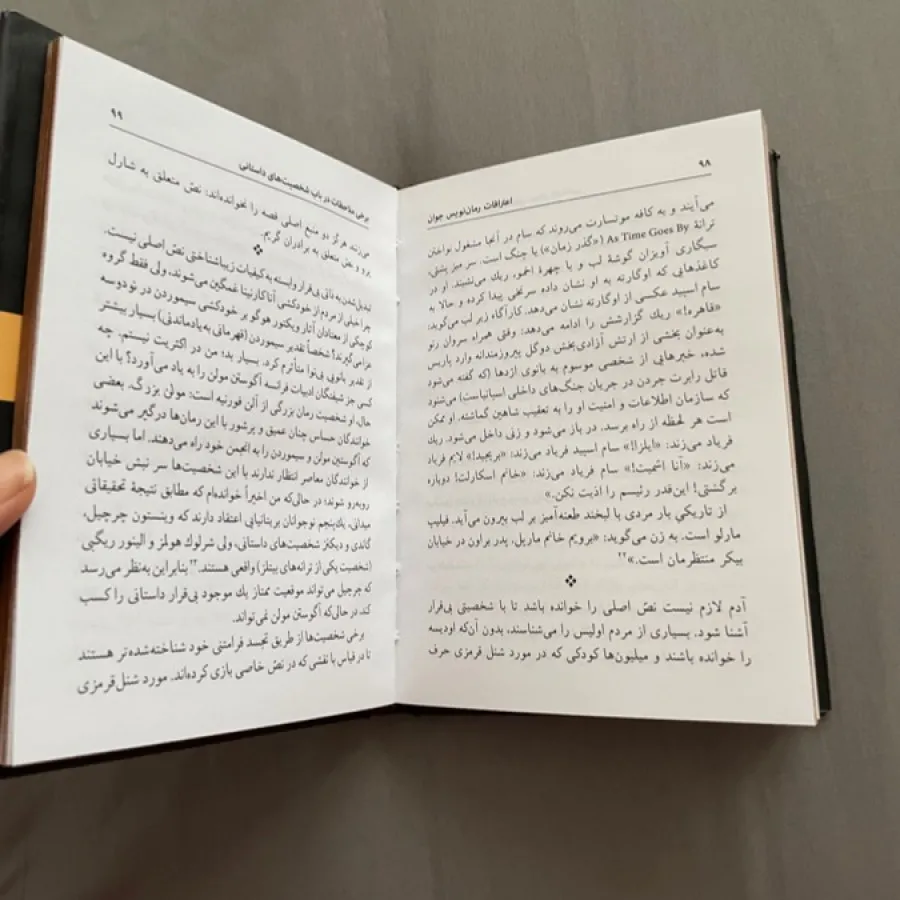 ۹۸
اعترافات رمان‌نویس جوان
می‌آیند و به کافه مونتسارت می‌روند که سام در آنجا مشغول نواختن
ترانهٔ As Time Goes By («گذر زمان») با چنگ است. سر میز پشتی،
سیگاری آویزان گوشهٔ لب و با چهرهٔ اخمو، ریك می‌نشیند. او در
کاغذهایی که اوگارته به او نشان داده سرنخی پیدا کرده و حالا به
سام اسپید عکسی از اوگارته نشان می‌دهد. کارآگاه زیر لب می‌گوید:
«قاهره!» ریك گزارشش را ادامه می‌دهد: وقتی همراه سروان رنو
به‌عنوان بخشی از ارتش آزادی‌بخش دوگل پیروزمندانه وارد پاریس
شده، خبرهایی از شخصی موسوم به بانوی اژدها (که گفته می‌شود
قاتل رابرت جردن در جریان جنگ‌های داخلی اسپانیاست) می‌شنود
که سازمان اطلاعات و امنیت او را به تعقیب شاهین گماشته. او ممکن
است هر لحظه از راه برسد. در باز می‌شود و زنی داخل می‌شود. ریك
فریاد می‌زند: «ایلزا!» سام اسپید فریاد می‌زند: «بریجید!» لایم فریاد
می‌زند: «آنا اشمیت!» سام فریاد می‌زند: «خانم اسکارلت! دوباره
برگشتی! این‌قدر رئیسم را اذیت نکن.»
از تاریکیِ بار مردی با لبخند طعنه‌آمیز بر لب بیرون می‌آید. فیلیپ
مارلو است. به زن می‌گوید: «برویم خانم مارپل، پدر براون در خیابان
بیکر منتظرمان است.»
آدم لازم نیست نصّ اصلی را خوانده باشد تا با شخصیتی بی‌قرار
آشنا شود. بسیاری از مردم اولیس را می‌شناسند، بدون آن‌که اودیسه
را خوانده باشند و میلیون‌ها کودکی که در مورد شنل قرمزی حرف
۹۹
برخی ملاحظات در باب شخصیت‌های داستانی
می‌زنند هرگز دو منبع اصلی قصه را نخوانده‌اند: نصّ متعلق به شارل
پرو و متن متعلق به برادران گریم.
تبدیل‌شدن به ذاتی بی‌قرار وابسته به کیفیات زیباشناختی نصّ اصلی نیست.
چرا خیلی از مردم از خودکشی آنا کارنینا غمگین می‌شوند، ولی فقط گروه
کوچکی از معتادان آثار ویکتور هوگو بر خودکشی سیموردن در نودوسه
عزا می‌گیرند؟ شخصاً تقدیر سیموردن (قهرمانی به‌یادماندنی) بسیار بیشتر
از تقدیر بانویی بی‌نوا متأثرم کرد. بسیار بد؛ من در اکثریت نیستم. چه
کسی جز شیفتگان ادبیات فرانسه آگوستن مولن را به یاد می‌آورد؟ با این
حال، او شخصیت رمان بزرگی از آلن فورنیه است: مولن بزرگ. بعضی
خوانندگان حساس چنان عمیق و پرشور با این رمان‌ها درگیر می‌شوند
که آگوستن مولن و سیموردن را به انجمن خود راه می‌دهند. اما بسیاری
از خوانندگان معاصر انتظار ندارند با این شخصیت‌ها سر نبش خیابان
روبه‌رو شوند؛ در حالی‌که من اخیراً خوانده‌ام که مطابق نتیجهٔ تحقیقاتی
میدانی، یك‌پنجم نوجوانان بریتانیایی اعتقاد دارند که وینستون چرچیل،
گاندی و دیکنز شخصیت‌های داستانی، ولی شرلوك هولمز و الینور ریگبی
(شخصیت یکی از ترانه‌های بیتلز) واقعی هستند. بنابراین به‌نظر می‌رسد
که چرچیل می‌تواند موقعیت ممتاز یك موجود بی‌قرار داستانی را کسب
کند، در حالی‌که آگوستن مولن نمی‌تواند.
برخی شخصیت‌ها از طریق تجسد فرامتنی خود شناخته‌شده‌تر هستند
تا در قیاس با نقشی که در نصّ خاصی بازی کرده‌اند. مورد شنل‌قرمزی